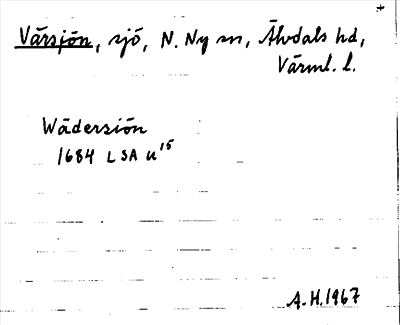 Värsjön, sjö, N. Ny sn, Älvdals hd,
Värml. l.
Wädersiön
1684 LSA u¹⁵
A.H. 1967